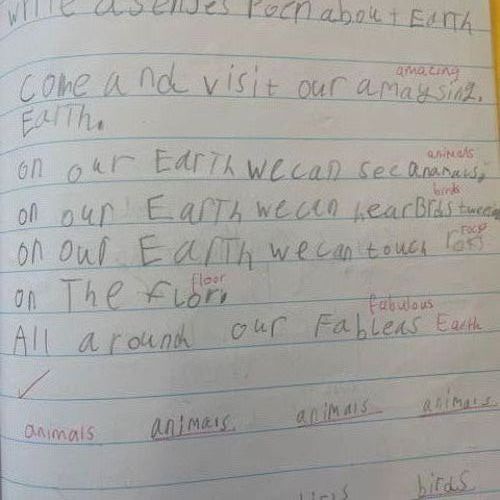 write a senses Poem about Earth
amazing
Come and visit our amaysing.
Earth.
animals
on our Earth we can see ananans,
birds
on our Earth we can hear Brds twee
on our Earth we can touch
floor
on The flor.
fabulous
All around our Fableas Earth
animals animals animals animals
birds